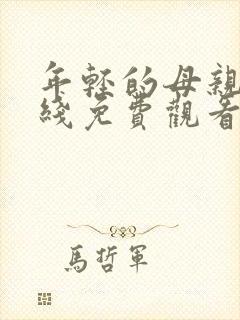 年輕的母親
綫免費觀看
馬哲軍